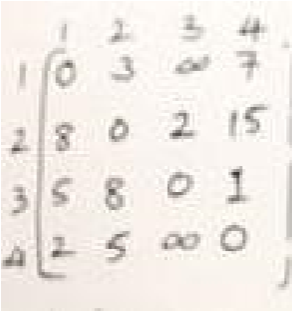 1 2 3 4
1 0 3 ∞ 7
2 8 0 2 15
3 5 8 0 1
4 2 5 ∞ 0